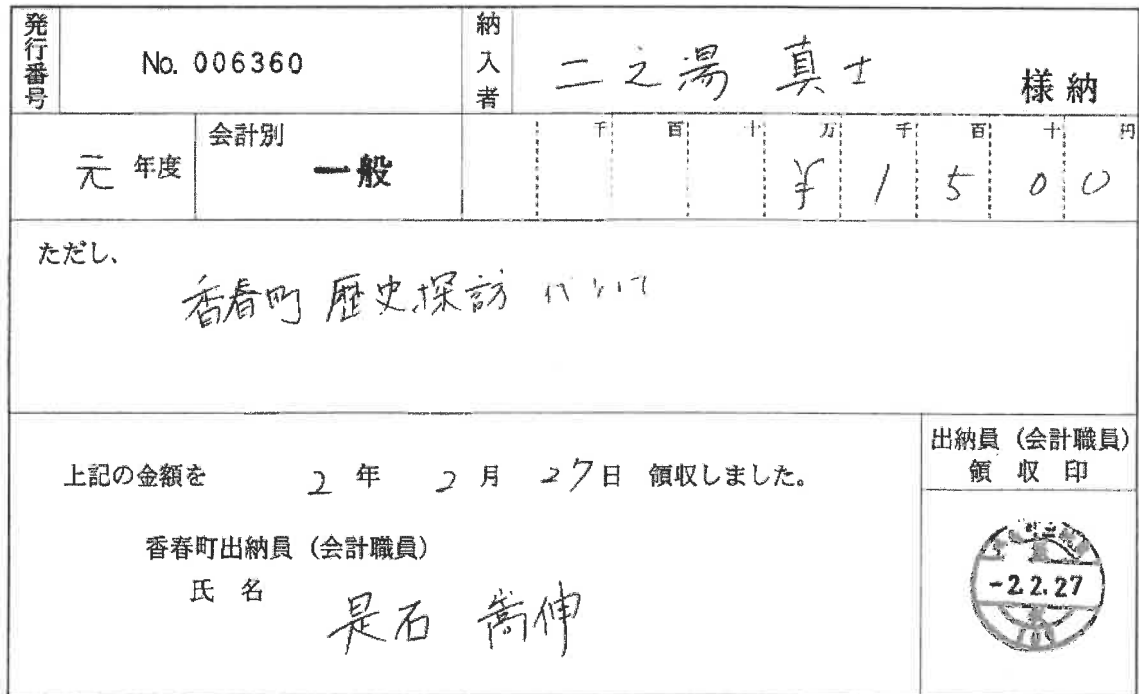 発行番号
No. 006360
納入者
二之湯 真士 様納
元 年度
会計別
一般
千 百 十 万 千 百 十 円
¥ 1 5 0 0
ただし、
香春町 歴史探訪 代として
上記の金額を 2 年 2 月 27日 領収しました。
香春町出納員（会計職員）
氏 名
是石 嵩伸
出納員（会計職員）
領 収 印
-2.2.27